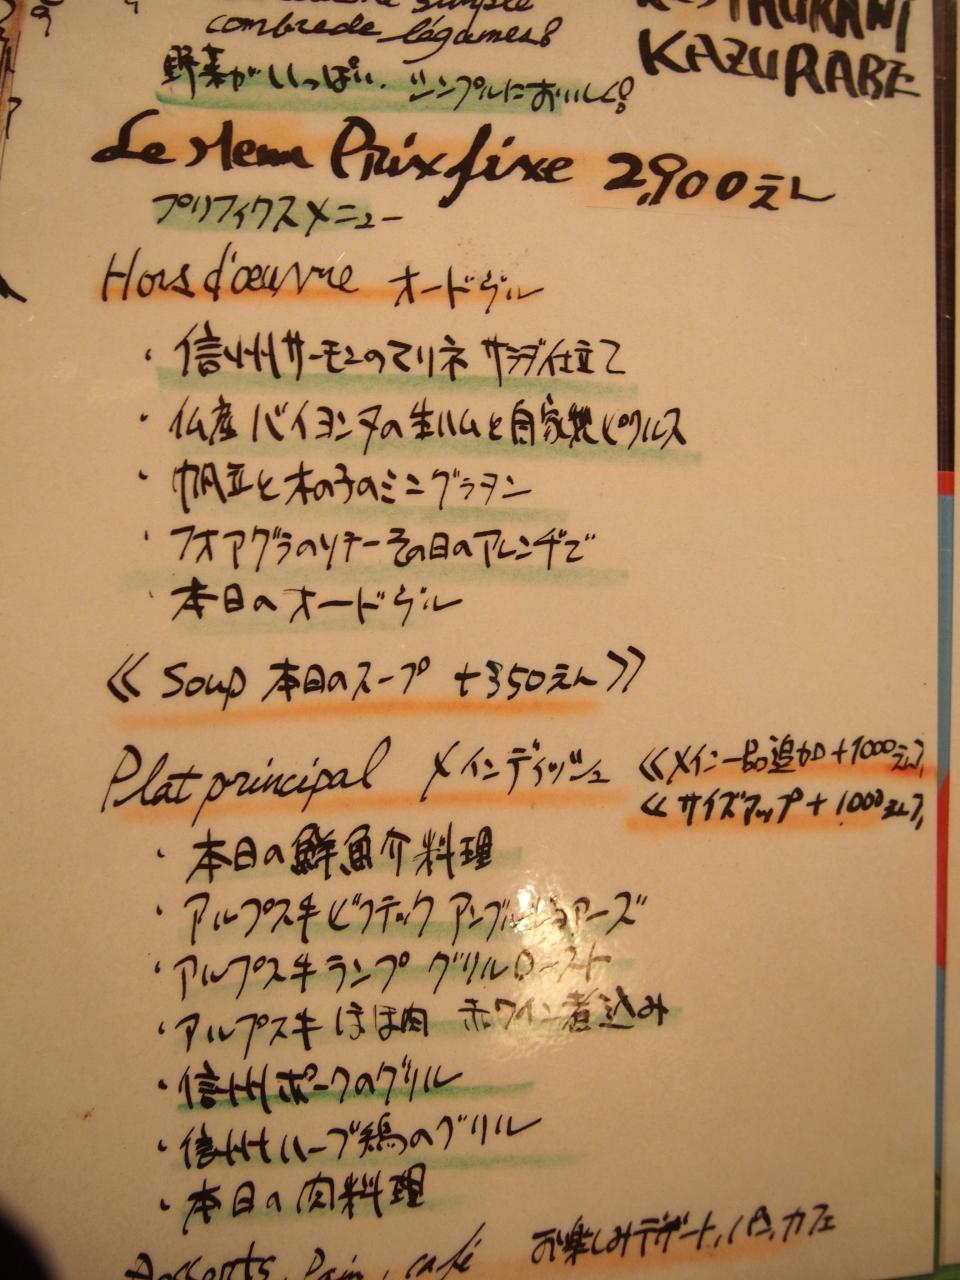 simple
RESTAURANT
combrede légumes!
KAZURABE
野菜がいっぱい、シンプルにおいしく!
Le Menu Prix fixe 2,900えん
プリフィクスメニュー
Hors d'œuvre オードヴル
・信州サーモンのマリネ サラダ仕立て
・仏産 バイヨンヌの生ハムと自家製ピクルス
・帆立と木の子のミニグラタン
・フォアグラのソテーその日のアレンヂで
・本日のオードヴル
《 Soup 本日のスープ +350えん 》
Plat principal メインディッシュ 《メイン一品追加+1000えん》
《サイズアップ+1,000えん》
・本日の鮮魚介料理
・アルプス牛ビフテック アンプルジョアーズ
・アルプス牛ランプ グリルロースト
・アルプス牛 ほほ肉 赤ワイン煮込み
・信州ポークのグリル
・信州ハーブ鶏のグリル
・本日の肉料理
Desserts, Pain, café お楽しみデザート、パン、カフェ